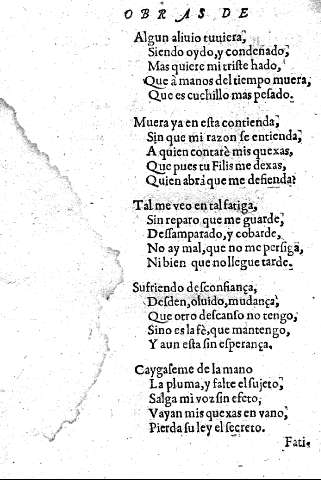 OBRAS DE
Algun aliuio tuuiera,
Siendo oydo, y condenado,
Mas quiere mi triste hado,
Que à manos del tiempo muera,
Que es cuchillo mas pesado.
Muera ya en esta contienda,
Sin que mi razon se entienda,
A quien contarè mis quexas,
Que pues tu Filis me dexas,
Quien abrà que me defienda?
Tal me veo en tal fatiga,
Sin reparo que me guarde,
Dessamparado, y cobarde,
No ay mal, que no me persiga,
Ni bien que no llegue tarde.
Sufriendo desconfiança,
Desden, oluido, mudança,
Que otro descanso no tengo,
Sino es la fè, que mantengo,
Y aun esta sin esperança.
Caygaseme de la mano
La pluma, y falte el sujeto,
Salga mi voz sin efeto,
Vayan mis quexas en vano,
Pierda su ley el secreto.
Fati-